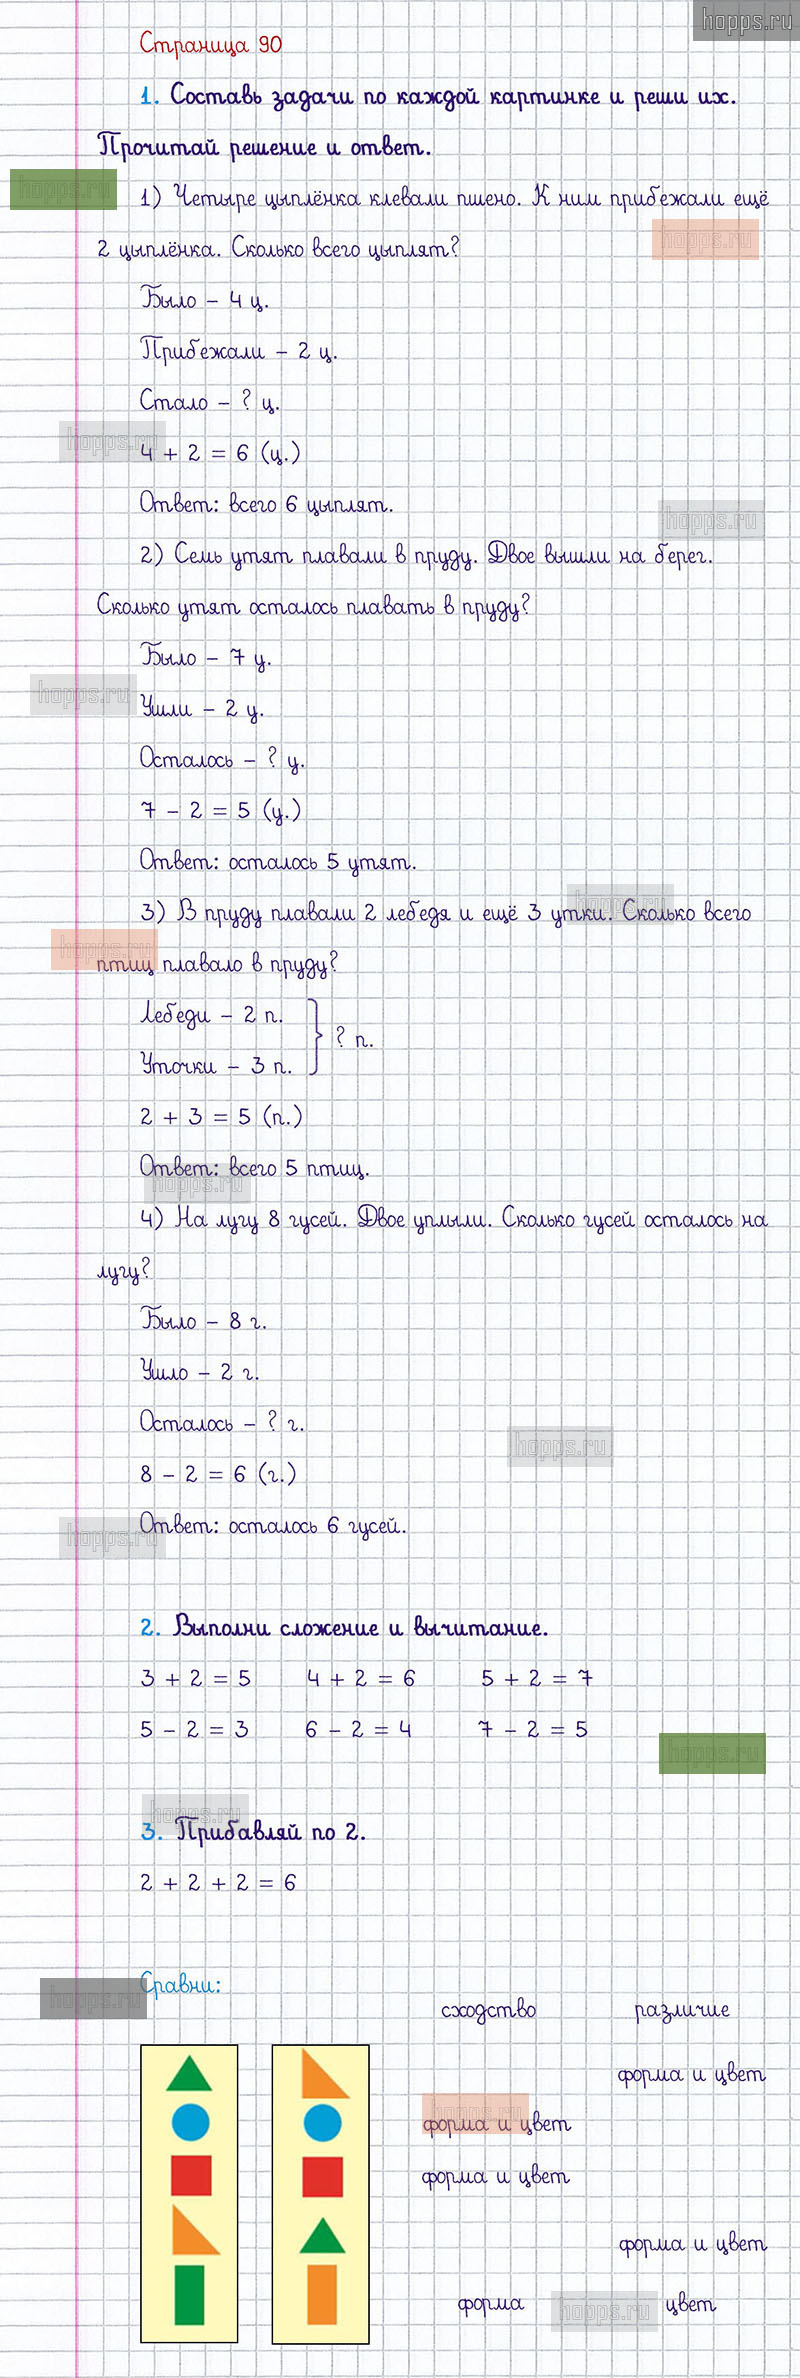 hopps.ru
Страница 90
1. Составь задачи по каждой картинке и реши их.
Прочитай решение и ответ.
hopps.ru
1) Четыре цыплёнка клевали пшено. К ним прибежали ещё
hopps.ru
2 цыплёнка. Сколько всего цыплят?
Было – 4 ц.
Прибежали – 2 ц.
Стало – ? ц.
hopps.ru
4 + 2 = 6 (ц.)
Ответ: всего 6 цыплят.
hopps.ru
2) Семь утят плавали в пруду. Двое вышли на берег.
Сколько утят осталось плавать в пруду?
Было – 7 у.
hopps.ru
Ушли – 2 у.
Осталось – ? у.
7 – 2 = 5 (у.)
Ответ: осталось 5 утят.
hopps.ru
3) В пруду плавали 2 лебедя и ещё 3 утки. Сколько всего
hopps.ru
птиц плавало в пруду?
Лебеди – 2 п.
? п.
Уточки – 3 п.
2 + 3 = 5 (п.)
Ответ: всего 5 птиц.
hopps.ru
4) На лугу 8 гусей. Двое уплыли. Сколько гусей осталось на
лугу?
Было – 8 г.
Ушло – 2 г.
Осталось – ? г.
hopps.ru
8 – 2 = 6 (г.)
Ответ: осталось 6 гусей.
hopps.ru
2. Выполни сложение и вычитание.
3 + 2 = 5 4 + 2 = 6 5 + 2 = 7
5 – 2 = 3 6 – 2 = 4 7 – 2 = 5
hopps.ru
hopps.ru
3. Прибавляй по 2.
2 + 2 + 2 = 6
Сравни:
hopps.ru
сходство различие
форма и цвет
hopps.ru
форма и цвет
форма и цвет
форма и цвет
форма цвет
hopps.ru